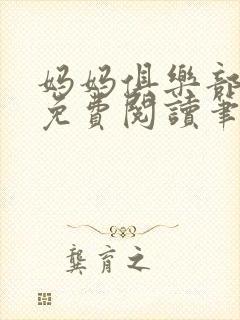 妈妈俱樂部
免費閱讀筆
龔育之